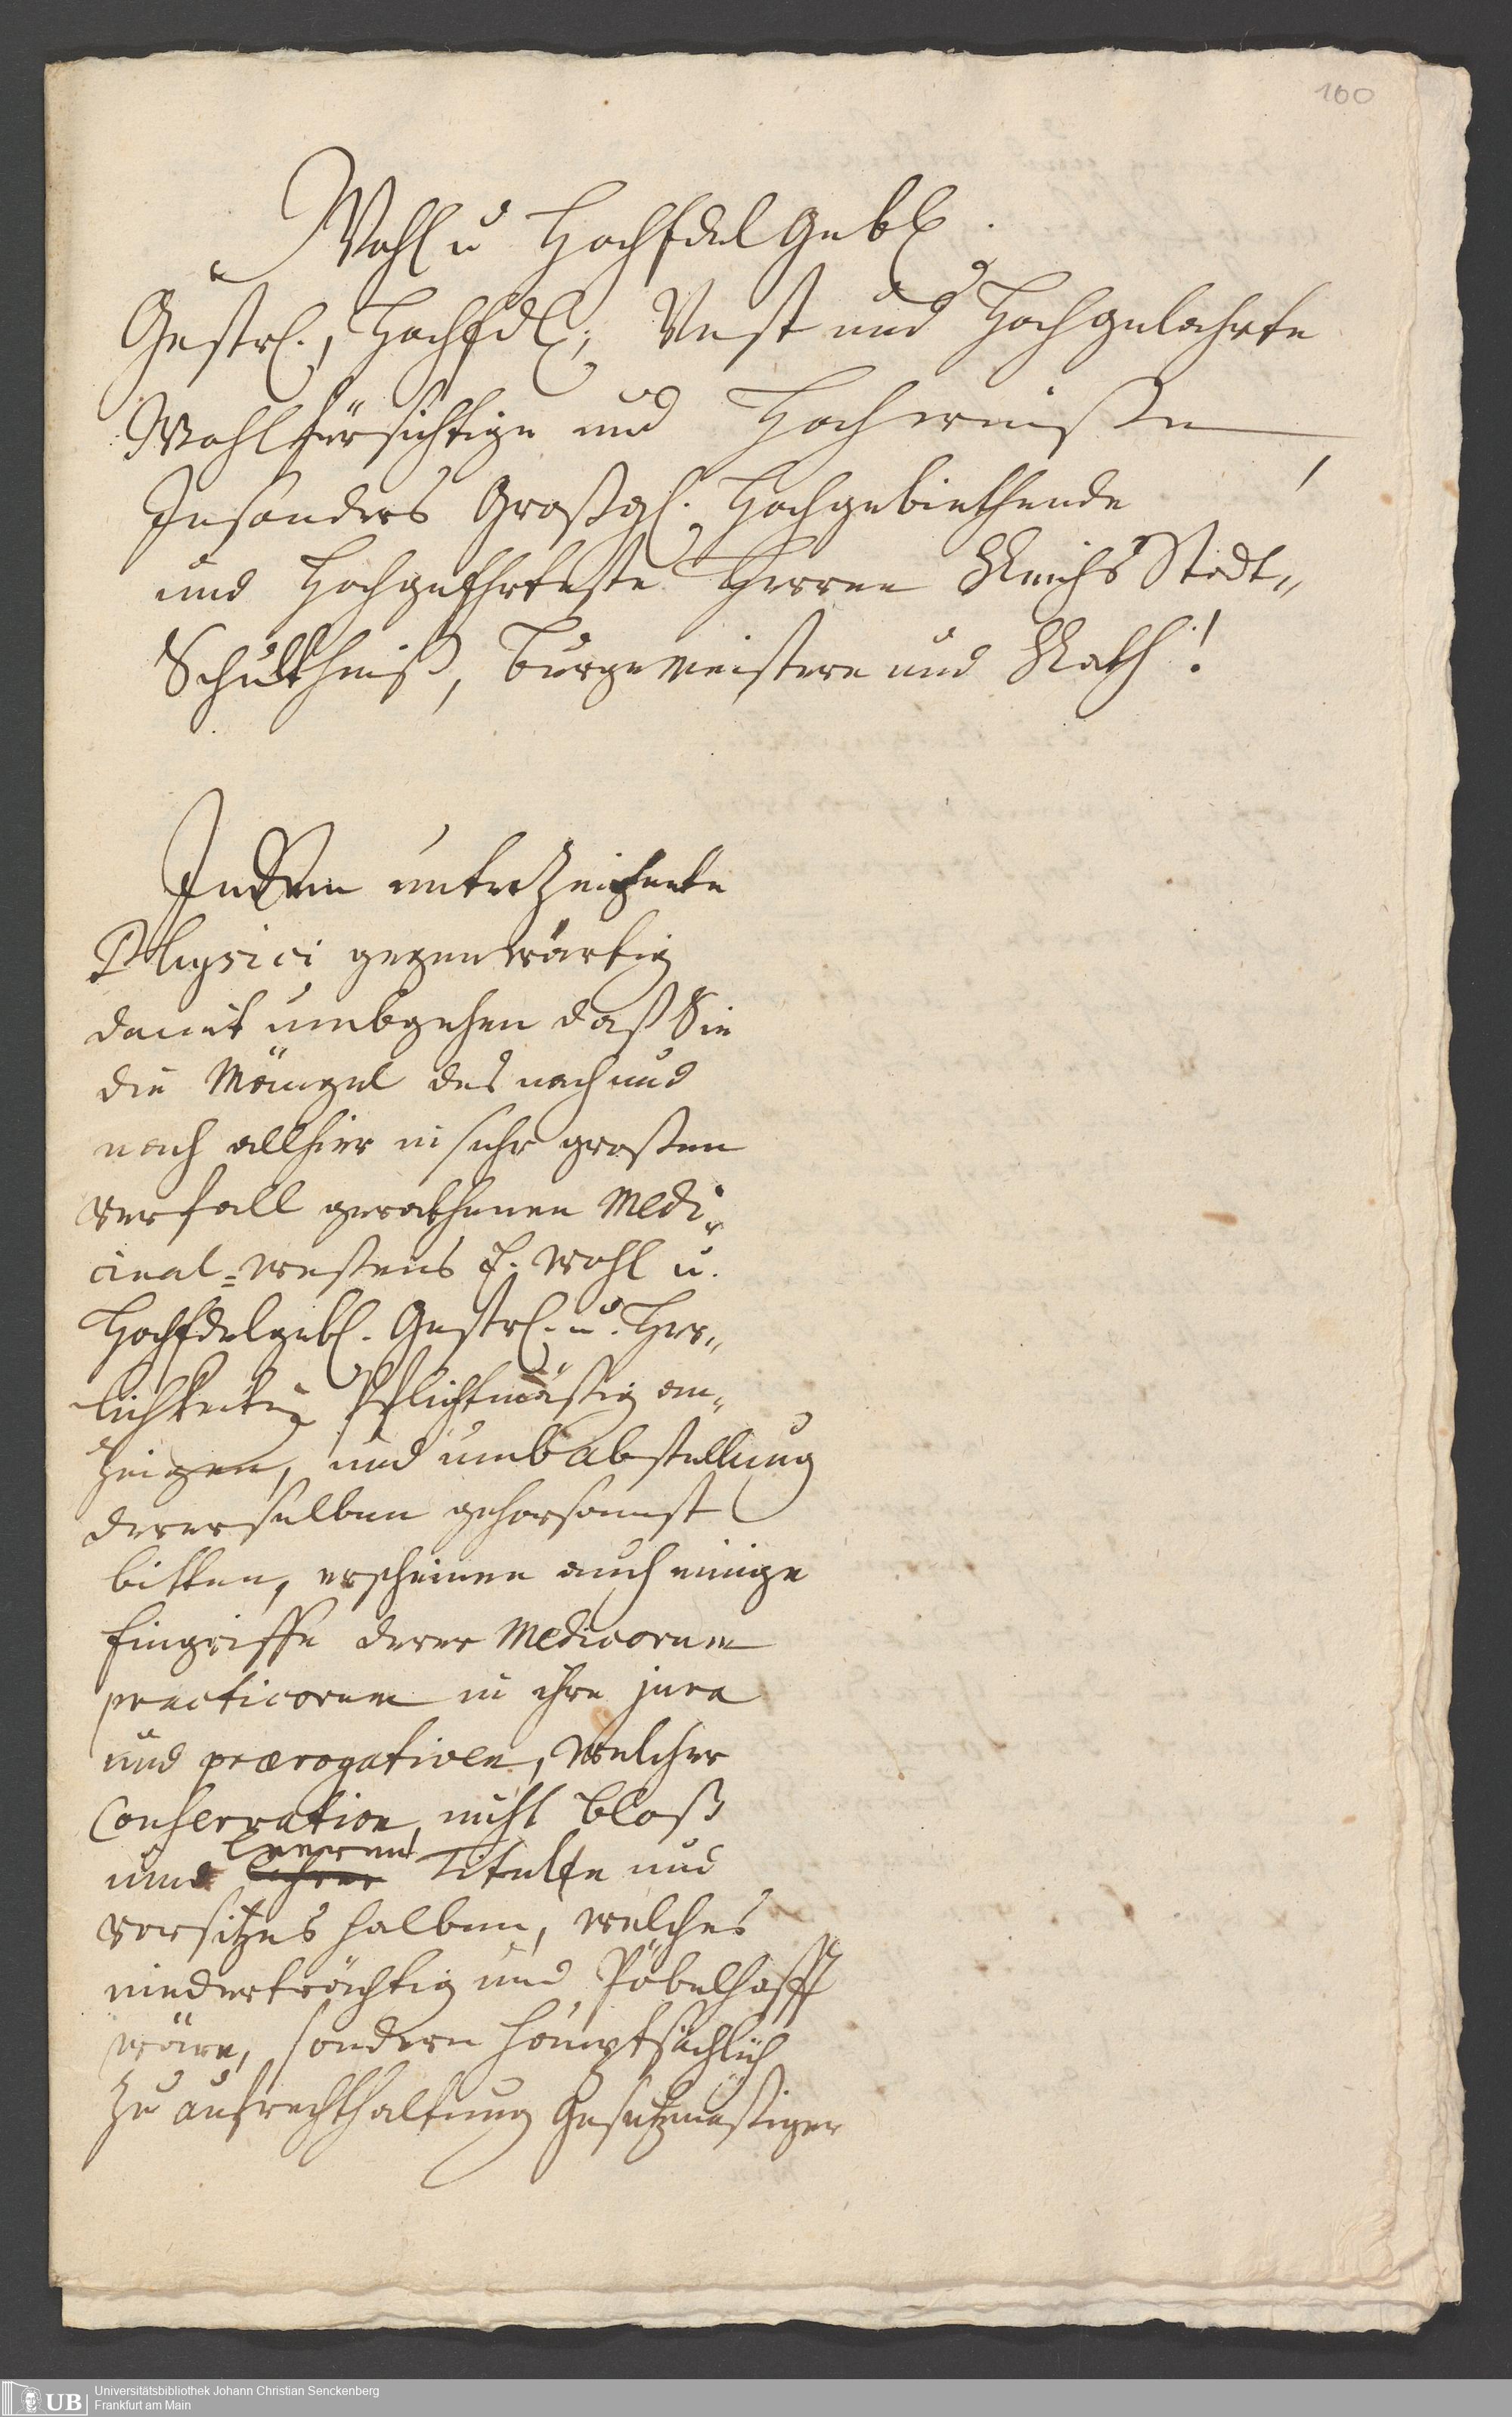 100
Wohl u HochEdelGebl.
Gestrl., HochEdl., Vest und Hochgelahrte
Wohlfürsichtige und Hochweiße
Insonders Großgl. Hochgebiethende
und Hochgeehrteste Herren Reichs Stadt„
Schultheiß, Burgemeistere und Rath!
Indem unterzeichnete
Physici gegenwärtig
damit umbgehen daß Sie
die Mängel des nach und
nach allhier in sehr großen
verfall gerathenen Medi„
cinal=weßens E. Wohl u.
HochEdelgebl. Gestrl. u. Herr„
lichkeiten Pflichtmäßig an„
zeigen, und umb abstellung
dererselben gehorsamst
bitten, erscheinen auch einige
Eingriffe derer Medicorum
practicorum in ihre jura
und praerogativen, welcher
Conservation nicht bloß
leeren
und Titulen und
vorsitzes halben, welches
niederträchtig und Pöbelhafft
wäre, sondern hauptsächlich
zu aufrechthaltung Gesetzmäßiger
UB
Universitätsbibliothek Johann Christian Senckenberg
Frankfurt am Main